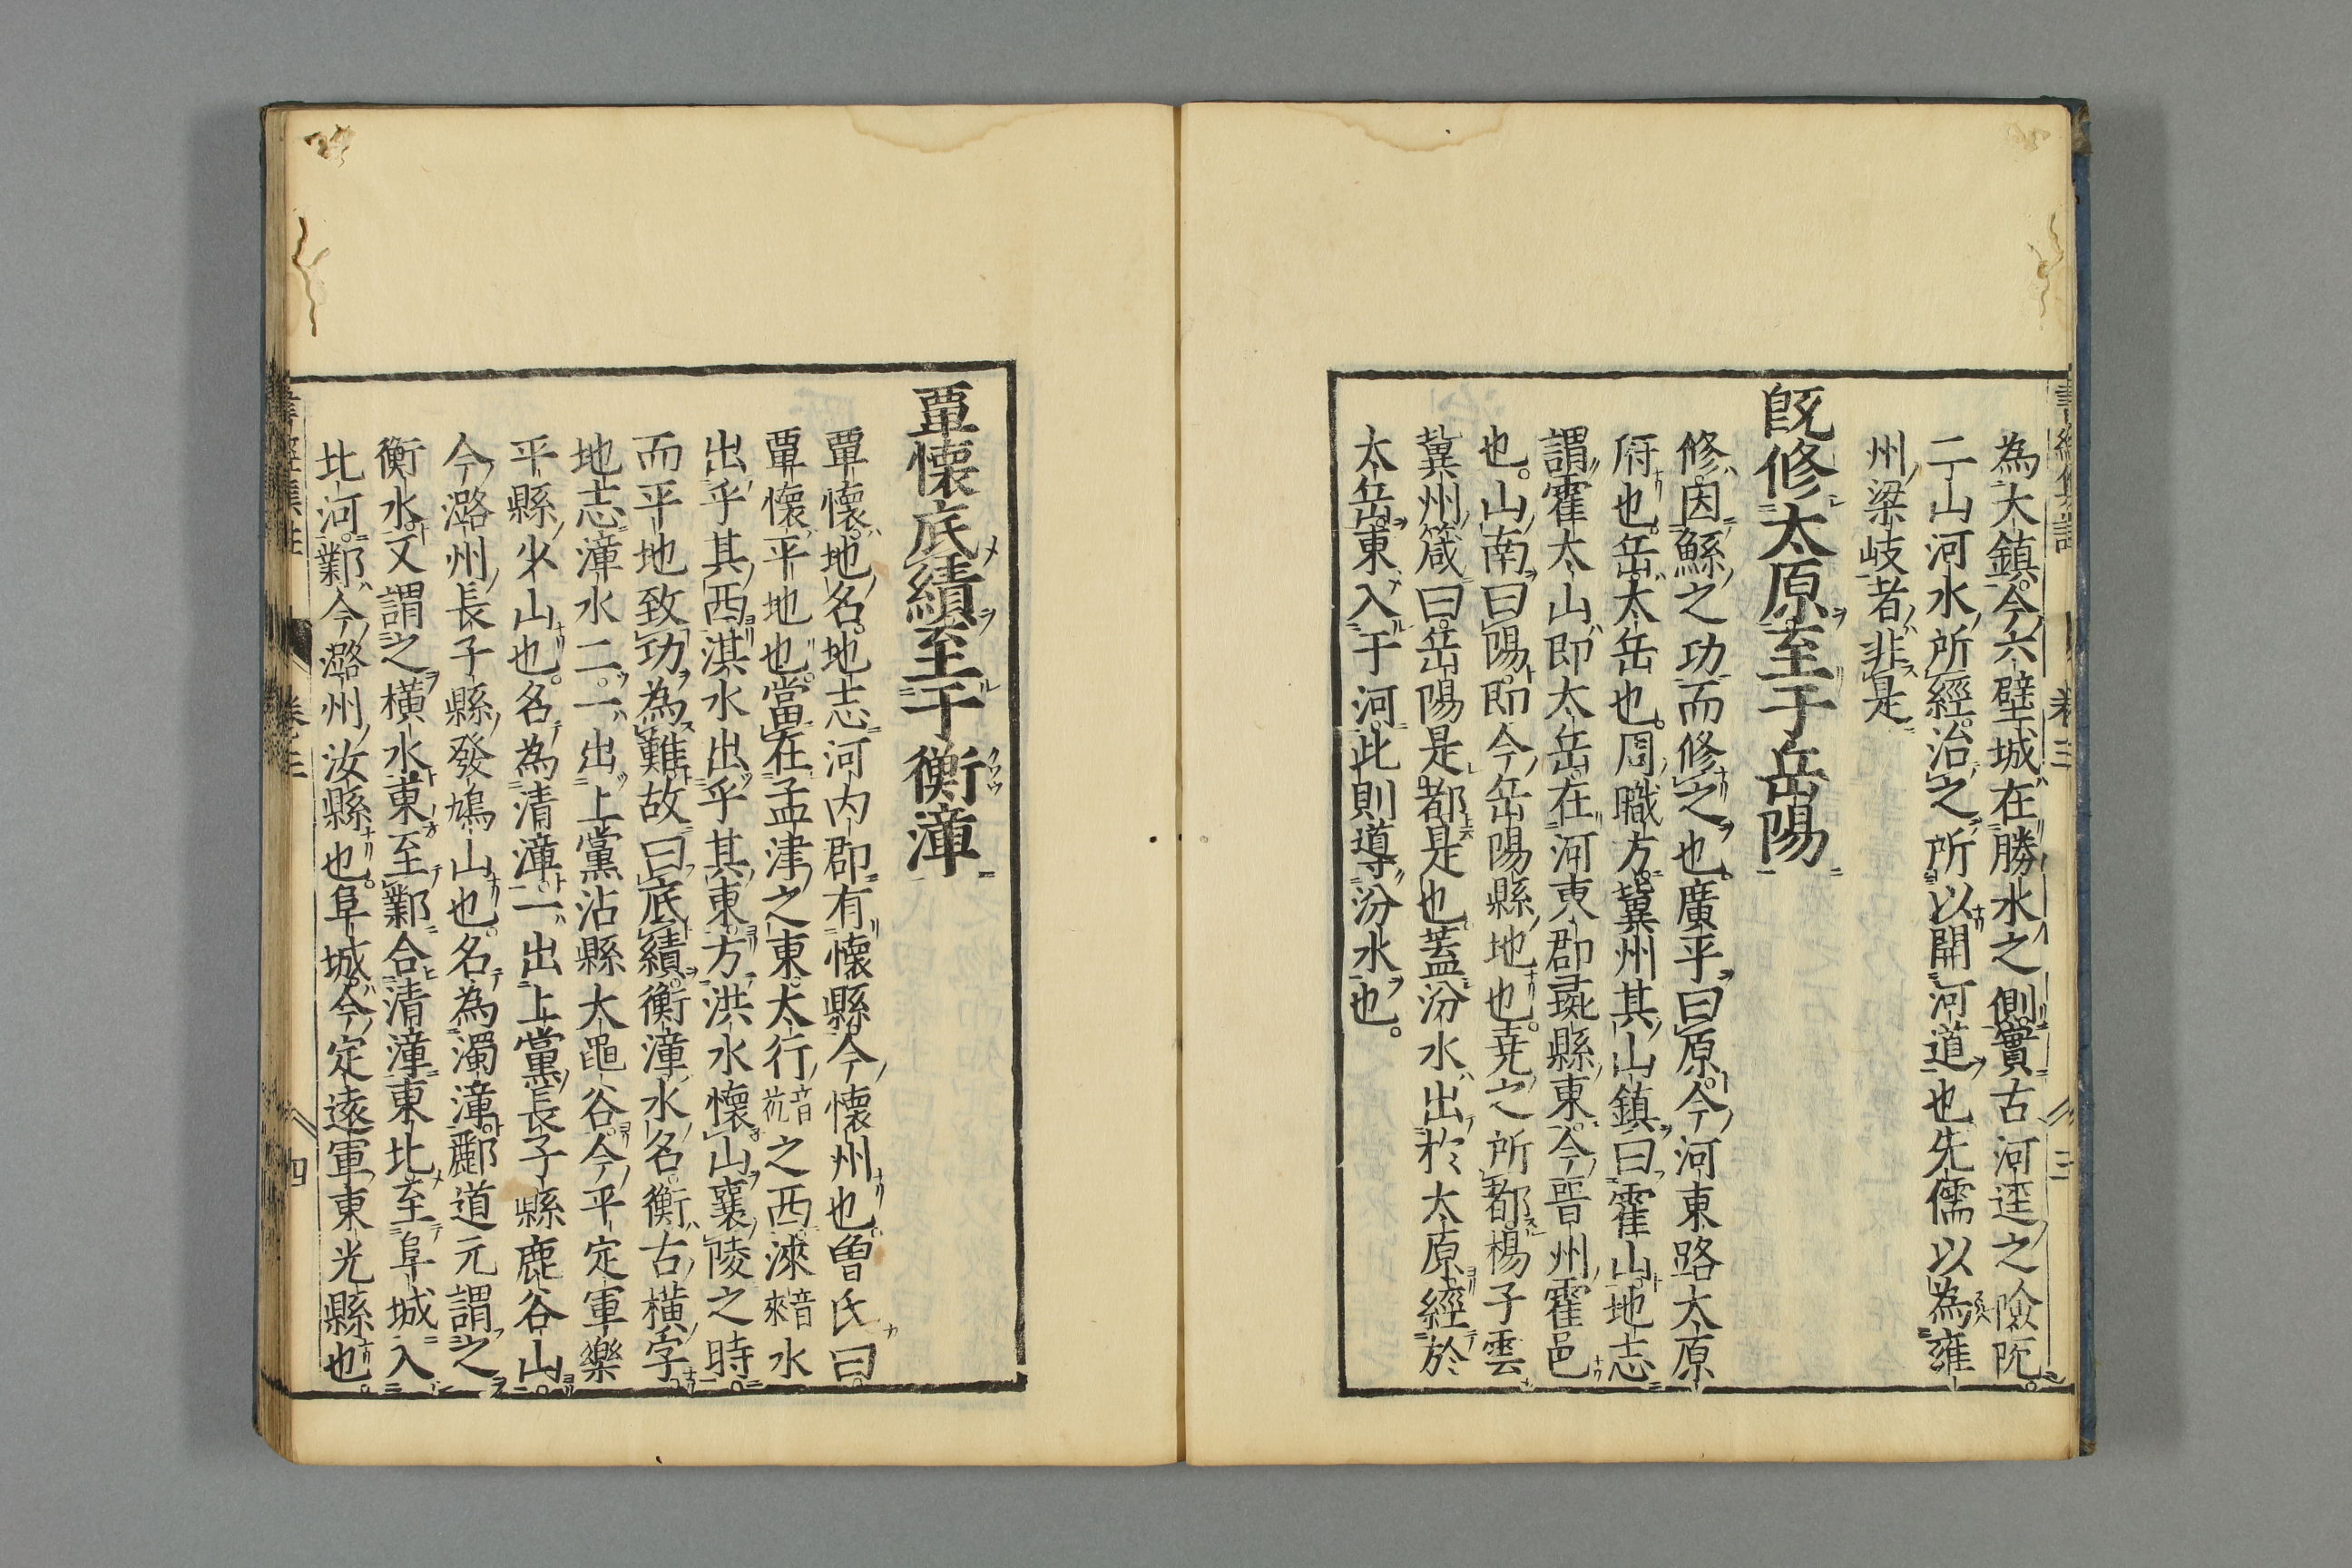 為大鎮今六壁城在勝水之側實古河逕之險阨
二山河水所經治之所以開河道也先儒以為雍
州梁岐者非是
既修太原至于岳陽
修因鯀之功而修之也廣平曰原今河東路太原
府也岳太岳也周職方冀州其山鎮曰霍山地志
謂霍太山即太岳在河東郡彘縣東今晉州霍邑
也山南曰陽即今岳陽縣地也堯之所都楊子雲
冀州箴曰岳陽是都是也蓋汾水出於太原經於
太岳東入于河此則導汾水也
覃懷底績至于衡漳
覃懷地名地志河内郡有懷縣今懷州也曽氏曰
覃懷平地也當在孟津之東太行音杭之西淶音來水
出乎其西淇水出乎其東方洪水懷山襄陵之時
而平地致功為難故曰底績衡漳水名衡古橫字
地志漳水二一出上黨沾縣大黽谷今平定軍樂
平縣少山也名為清漳一出上黨長子縣鹿谷山
今潞州長子縣發鳩山也名為濁漳酈道元謂之
衡水又謂之橫水東至鄴合清漳東北至阜城入
北河鄴今潞州汝縣也阜城今定遠軍東光縣也
卷三
四